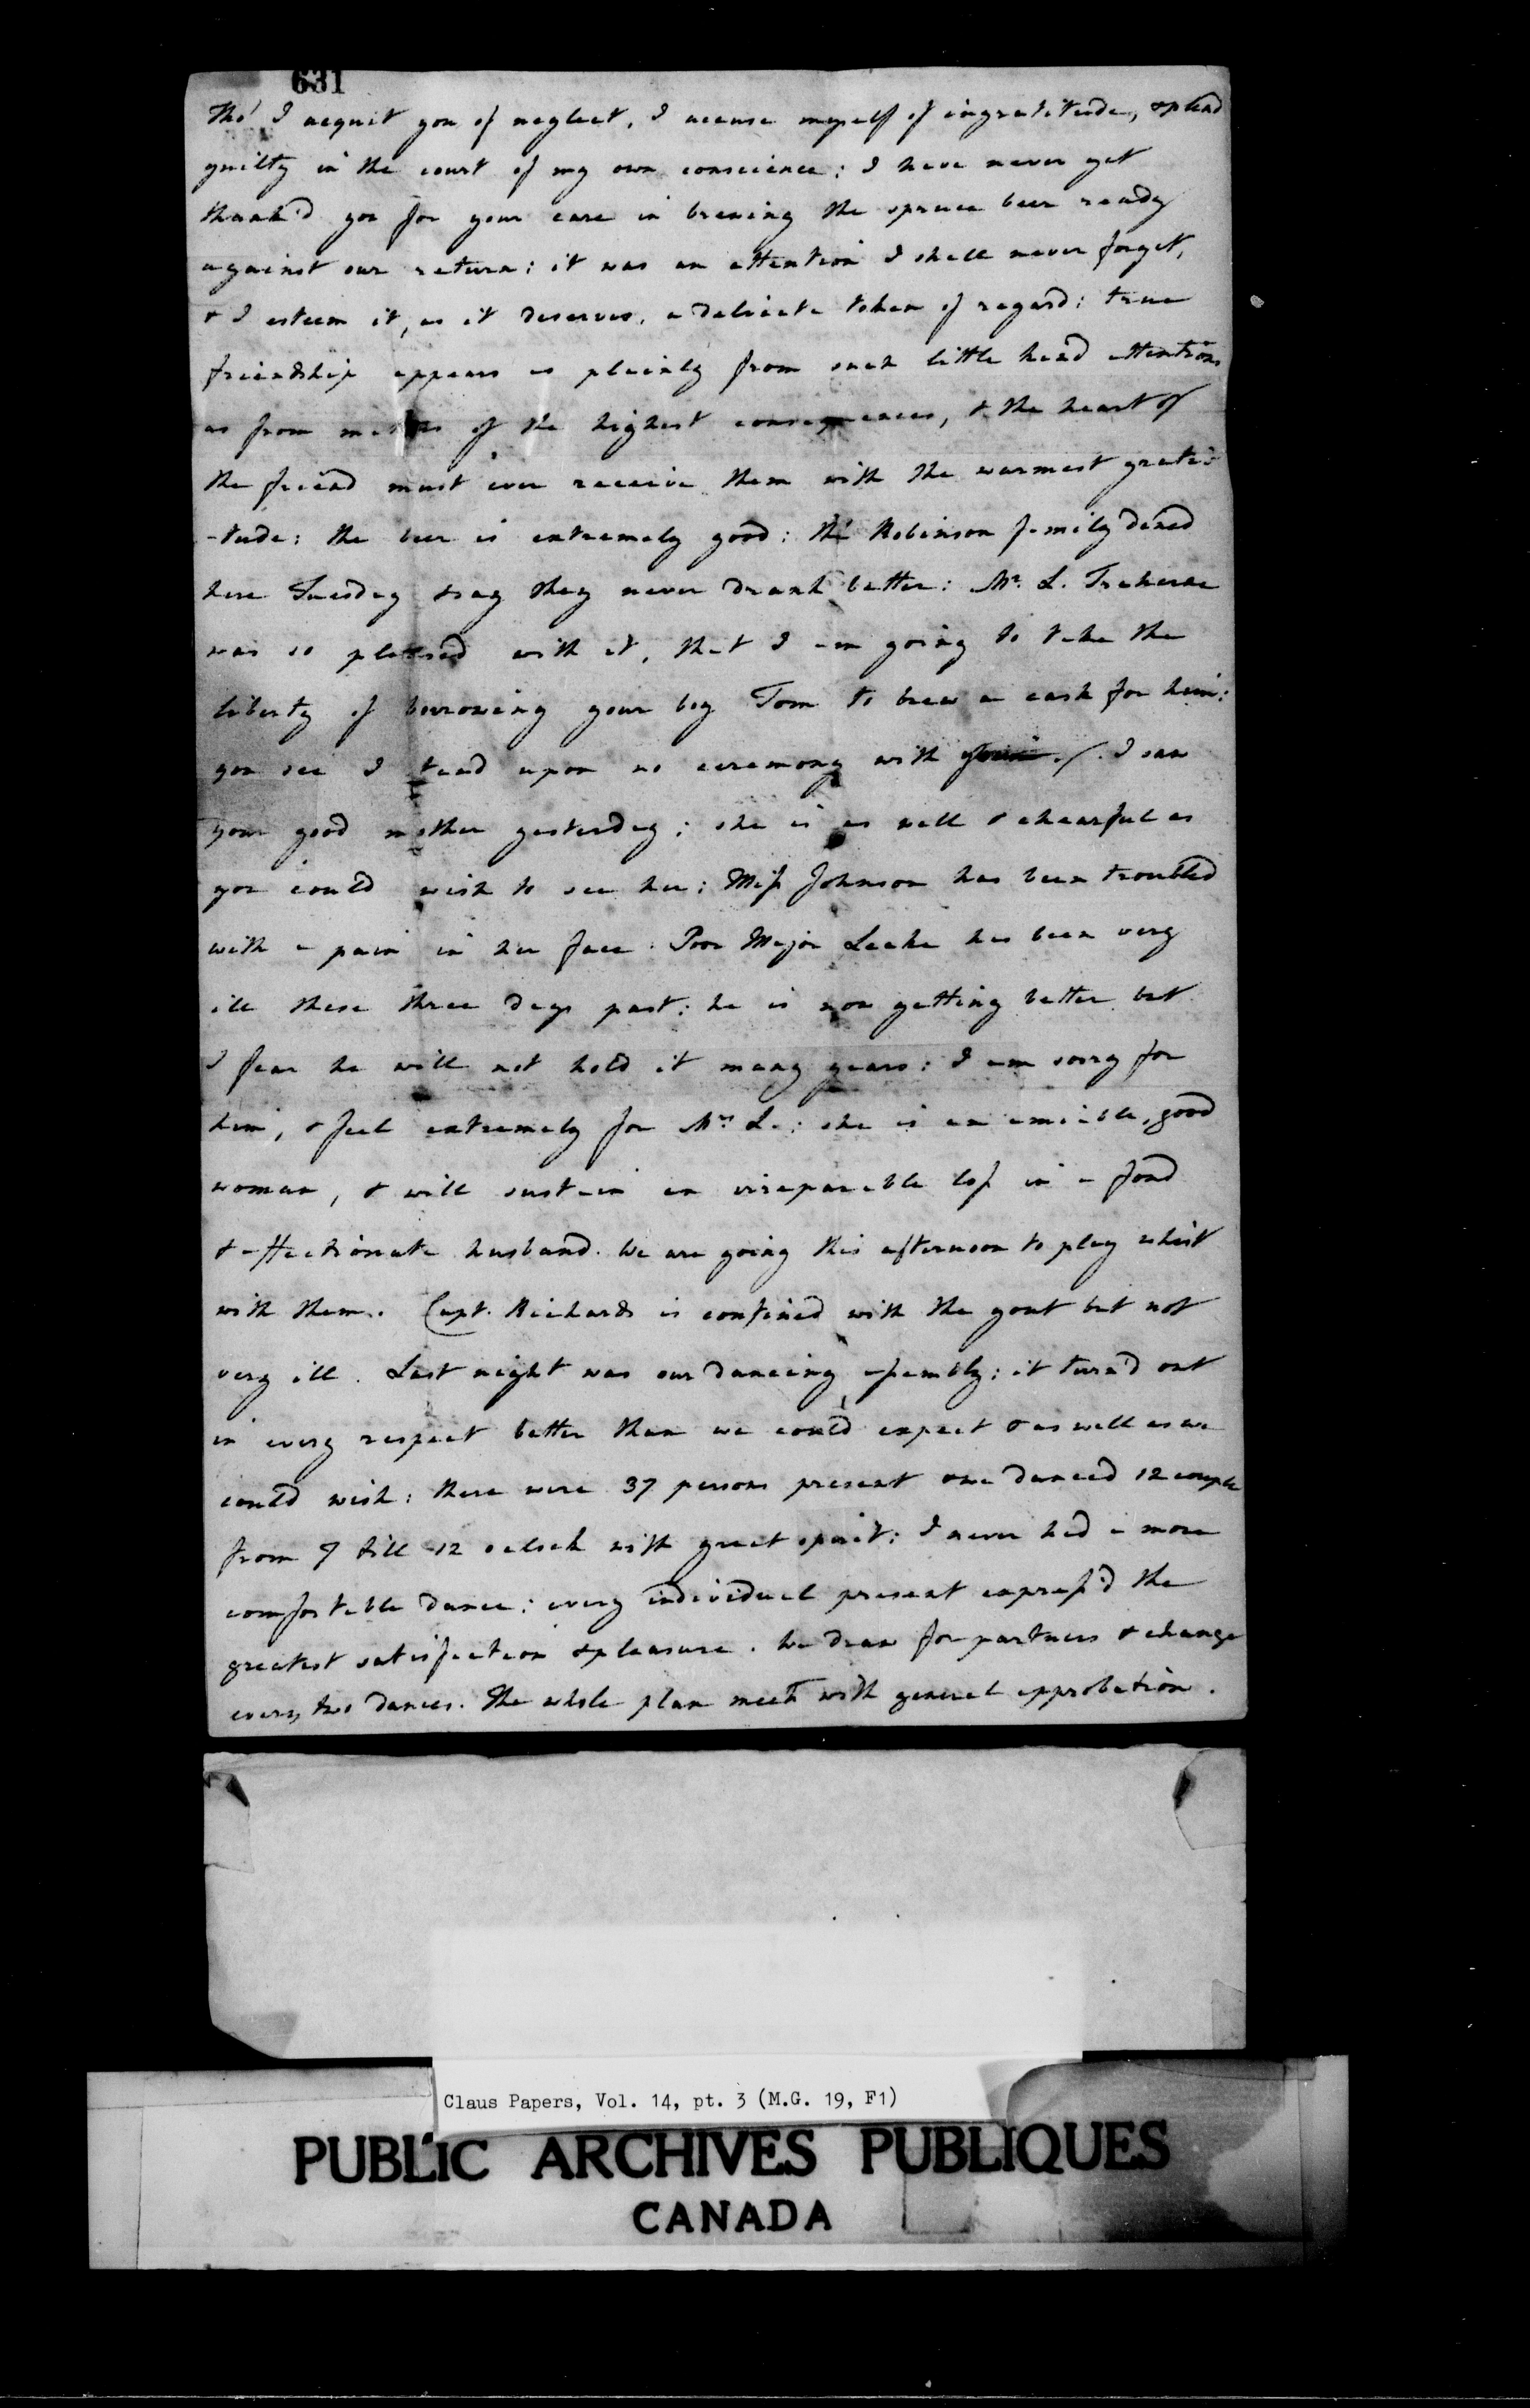 631
Tho' I acquit you of neglect, I accuse myself of ingratitude, & plead
guilty in the court of my own conscience: I have never yet
thank'd you for your care in brewing the spruce beer ready
against our return: it was an attention I shall never forget,
& I esteem it, as it deserves, a delicate token of regard: true
friendship appears as plainly from such little kind attentions
as from matters of the highest consequences, & the heart of
the friend must ever receive them with the warmest grati-
-tude: the beer is extremely good: the Robinson family dined
here Tuesday & say they never drank better: Mr. L. Traherne
was so pleased with it, that I am going to take the
liberty of borrowing your boy Tom to brew a cask for him:
you see I stand upon no ceremony with . I saw
your good mother yesterday; she is as well & chearful as
you could wish to see her: Miss Johnson has been troubled
with a pain in her face. Poor Major Leake has been very
ill these three days past: he is now getting better but
I fear he will not hold it many years: I am sorry for
him, & feel extremely for Mrs. L.: she is an amiable, good
woman, & will sustain an irreparable loss in a fond
& affectionate husband. We are going this afternoon to play whist
with them. Capt. Richards is confined with the gout but not
very ill. Last night was our dancing assembly: it turn'd out
in every respect better than we could expect & as well as we
could wish: there were 37 persons present & we danced 12 couple
from 7 till 12 oclock with great spirit: I never had a more
comfortable dance: every individual present express'd the
greatest satisfaction & pleasure. We draw for partners & change
every two dances. The whole plan meets with general approbation.
Claus Papers, Vol. 14, pt. 3 (M.G. 19, F1)
PUBLIC ARCHIVES PUBLIQUES
CANADA